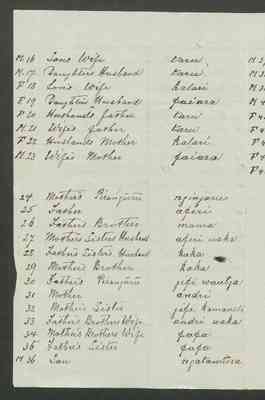 M.16 Sons Wife taru
M.17 Daughters Husband taru
F 18 Sons Wife kalari
F 19 Daughters Husband paiara
F 20 Husbands father taru
M. 21 Wifes father taru
F. 22 Husbands Mother kalari
M. 23 Wifes Mother paiara
24 Mothers
25 Father aperi
26 Fathers Brother
27 Mothers Sisters Husband aperi waka
28 Fathers Sisters Husband kaka
29 Mothers Brother kaka
30 Fathers
31 Mother andri
32 Mothers Sister
33 Fathers Brothers Wife andri waka
34 Mothers Brothers Wife papa
35 Fathers Sister papa
M 36 Son